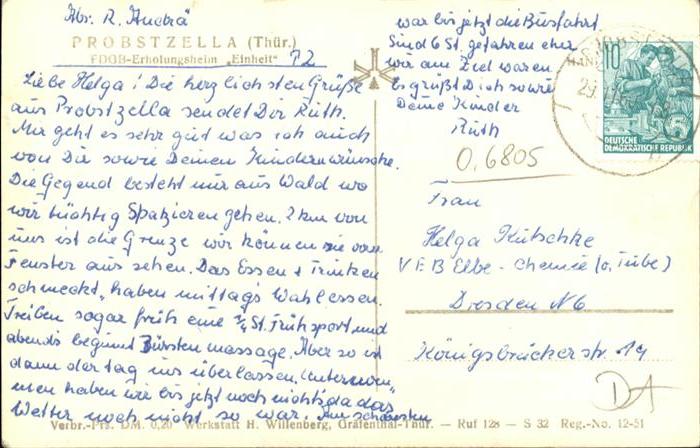 Abs. R. Andrä
PROBSTZELLA (Thür.)
FDGB-Erholungsheim „Einheit“ 72
Liebe Helga! Die herzlichsten Grüße
aus Probstzella sendet Dir Ruth.
Mir geht es sehr gut was ich auch
von Dir sowie Deinen Kindern wünsche.
Die Gegend besteht nur aus Wald wo
wir tüchtig Spatzieren gehen. 2 km von
uns ist die Grenze wir können sie vom
Fenster aus sehen. Das Essen + Trinken
schmeckt, haben mittag's Wahlessen.
Treiben sogar früh eine ¼ St. Frühsport und
abends beginnt Bürstenmassage. Aber so ist
dann der tag uns überlassen. Unternom„
men haben wir bis jetzt noch nichts da das
Wetter noch nicht so war. Am schönsten
war bis jetzt die Busfahrt
Sind 6 St. gefahren eher
wir am Ziel waren
Es grüßt Dich sowie
Deine Kinder
Ruth
0,6805
Frau
Helga Kutschke
VEB Elbe-Chemie (o, Tube)
Dresden N6
Königsbrückerstr. 19
DA
10
5
DEUTSCHE
DEMOKRATISCHE REPUBLIK
Verbr.-Prs. DM. 0,20 Werkstatt H. Willenberg, Gräfenthal-Thür. — Ruf 128 — S 32 Reg.-No. 12-51